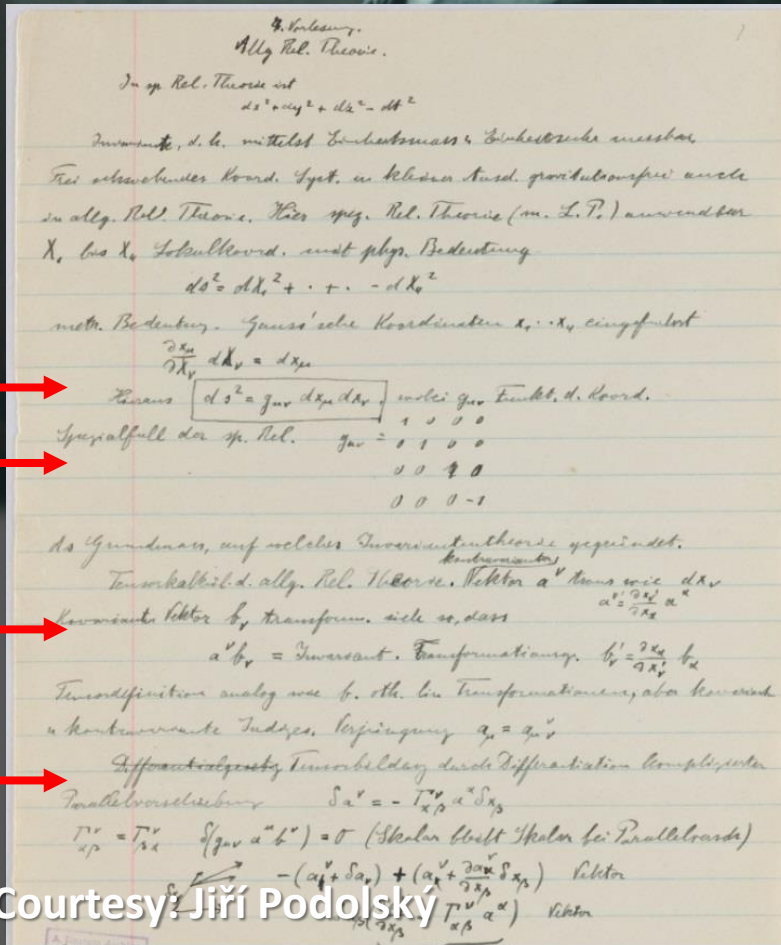 4. Vorlesung.
Allg Rel. Theorie.
1
In sp Rel. Theorie ist
dx² + dy² + dz² - dt²
Invariante, d. h. mittelst Einheitsmass u Einheitsuhr messbar.
Frei schwebendes Koord. Syst. in kleiner Ausd. gravitationsfrei auch
in allg. Rel. Theorie. Hier spez. Rel. Theorie (m. L. T.) anwendbar
X₁ bis X₄ Lokalkoord. mit phys. Bedeutung
ds² = dX₁² + · + · - dX₄²
metr. Bedeutung. Gauss'sche Koordinaten x₁ ·· x₄ eingeführt
∂xμ/∂Xν dXν = dxμ
Hieraus ds² = gμν dxμ dxν, wobei gμν Funkt. d. Koord.
Spezialfall der sp. Rel. gμν =
1 0 0 0
0 1 0 0
0 0 1 0
0 0 0 -1
ds Grundinvar, auf welches Invariantentheorie gegründet.
kontravarianter
Tensorkalkül d. allg. Rel. Theorie. Vektor aᵛ trans wie dxν
aᵛ' = ∂xν'/∂xα aᵅ
Kovariant. Vektor bν transform. sich so, dass
aᵛbν = Invariant. Transformationsg. bν' = ∂xα/∂xν' bα
Tensordefinition analog wie b. oth. lin Transformationen, aber kovariante
u kontravariante Indizes. Verjüngung aμ = aμνᵛ
Differentialgesetz Tensorbildung durch Differentiation komplizierter
Parallelverschiebung δaᵛ = - Γαβᵛ aᵅ δxβ
Γαβᵛ = Γβαᵛ δ(gμν aᵘ bᵛ) = 0 (Skalar bleibt Skalar bei Parallelversch)
Vektor
Γαβᵛ aᵅ) Vektor
Courtesy: Jiří Podolský